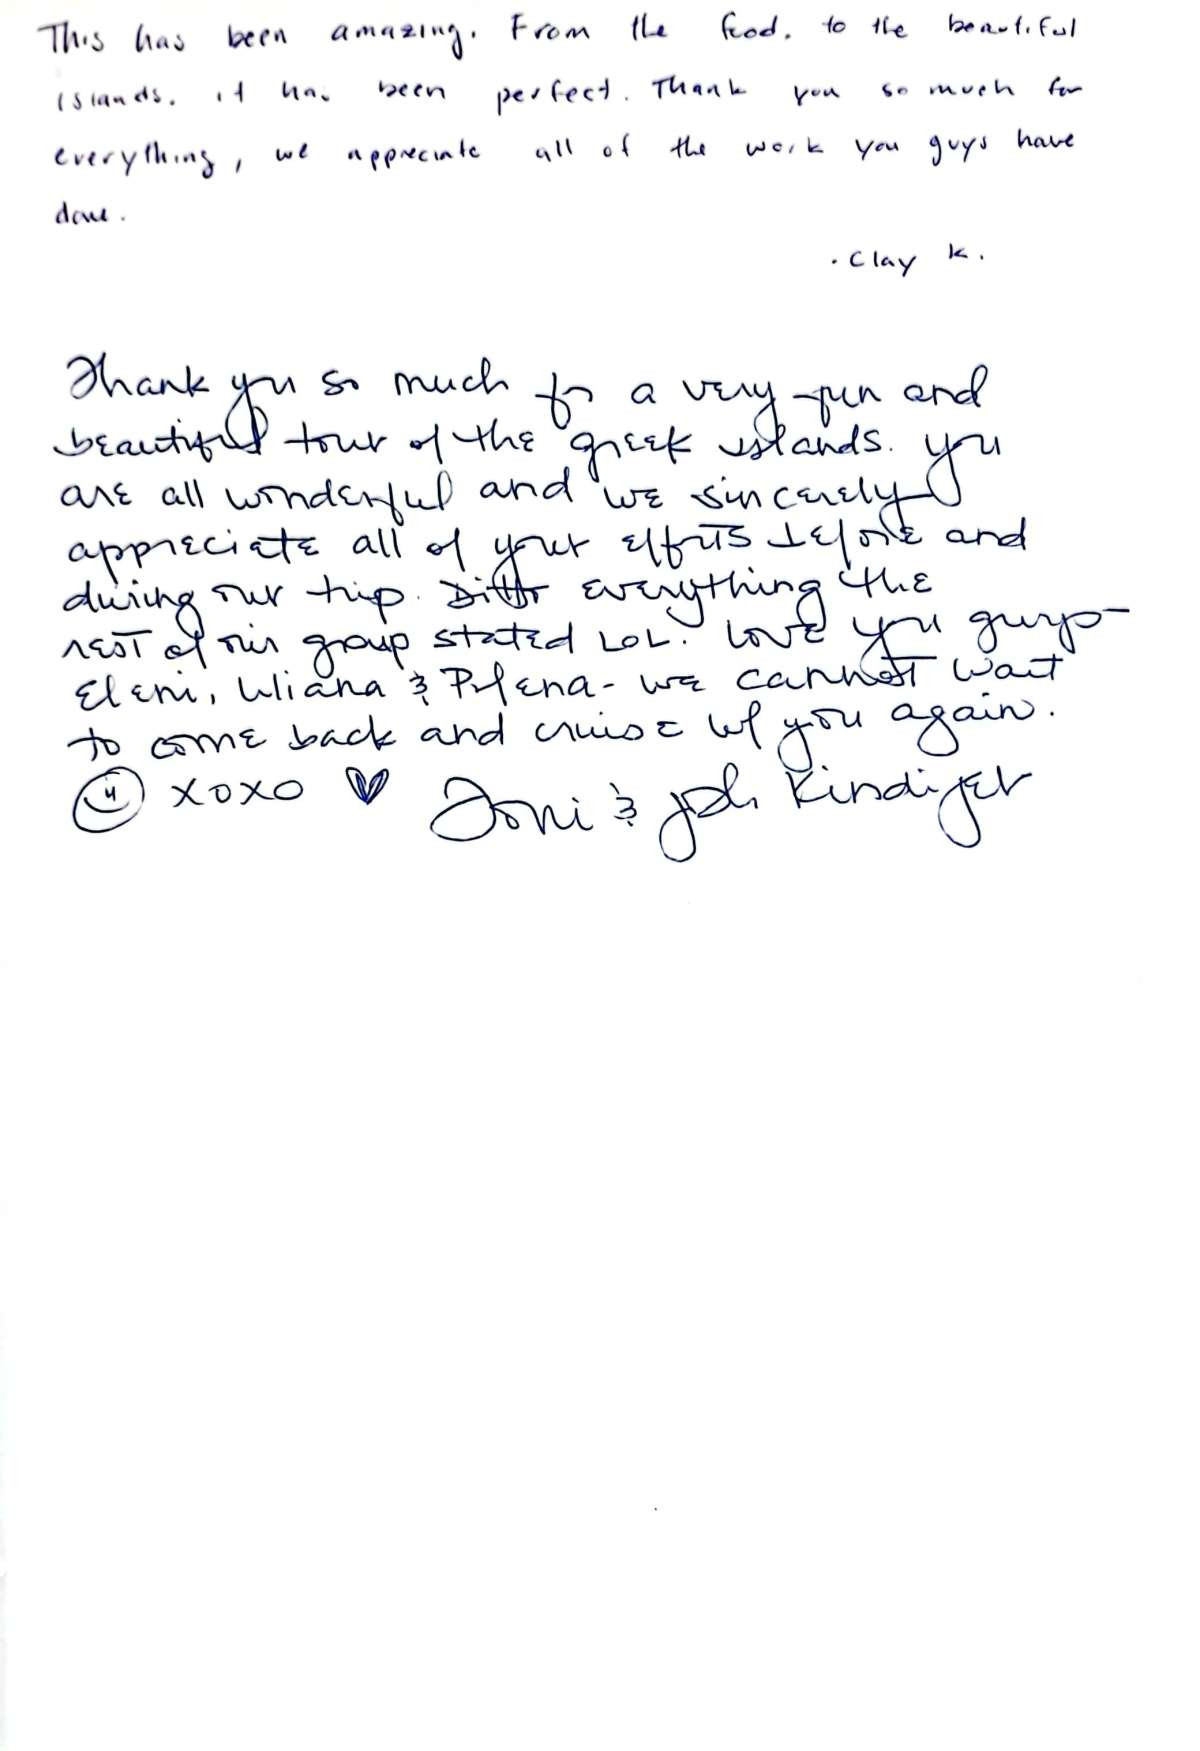 This has been amazing. From the food. to the beautiful
islands. it has been perfect. Thank you so much for
everything, we appreciate all of the work you guys have
done.
. Clay K.
Thank you so much for a very fun and
beautiful tour of the greek islands. you
are all wonderful and we sincerely
appreciate all of your efforts before and
during our trip. Ditto everything the
rest of our group stated LOL. Love you guys-
Eleni, & - we cannot wait
to come back and cruise w/ you again.
xoxo Toni & Kindiger